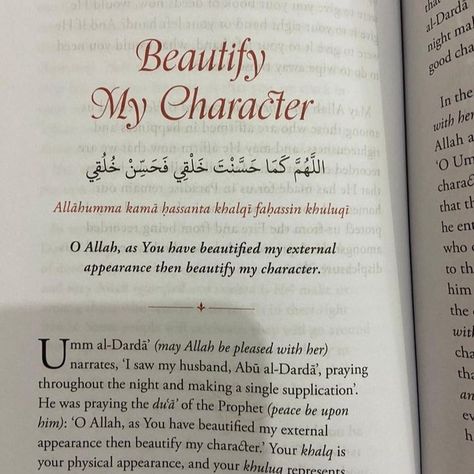 Beautify
My Character
اللَّهُمَّ كَمَا حَسَّنْتَ خَلْقِي فَحَسِّنْ خُلُقِي
Allāhumma kamā ḥassanta khalqī faḥassin khuluqī
O Allah, as You have beautified my external
appearance then beautify my character.
Umm al-Dardā’ (may Allah be pleased with her)
narrates, ‘I saw my husband, Abū al-Dardā’, praying
throughout the night and making a single supplication’.
He was praying the du‘ā’ of the Prophet (peace be upon
him): ‘O Allah, as You have beautified my external
appearance then beautify my character.’ Your khalq is
your physical appearance, and your khuluq represents
that
al-Dardā
night mak
good cha
In the
with her
Allah a
‘O Um
charac
that th
he ent
who
to th
him
the
with
cha
tha
an
ev
h